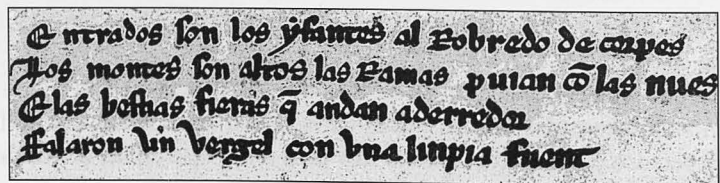 Entrados son los yfantes al Robredo de corpes
Los montes son altos las Ramas puian cõ las nues
E las bestias fieras q̃ andan aderredor
Falaron vn vergel con vna linpia fuent